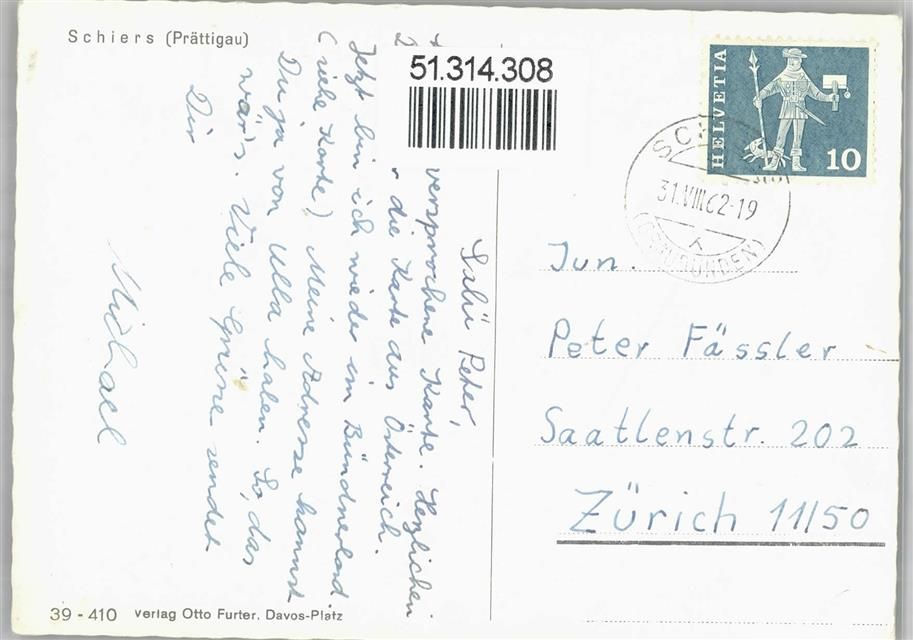 Schiers (Prättigau)
51.314.308
HELVETIA
10
31.VIII.62-19
Salü Peter,
versprochene Karte. Herzlichen
die Karte aus Österreich.
Jetzt bin ich wieder im Bündnerland.
(viele Karte) Meine Adresse kannst
Du ja von Ulla haben. So, das
wär's. Viele Grüsse sendet
Dir
Michael
Jun.
Peter Fässler
Saatlenstr. 202
Zürich 11/50
39 - 410 Verlag Otto Furter, Davos-Platz